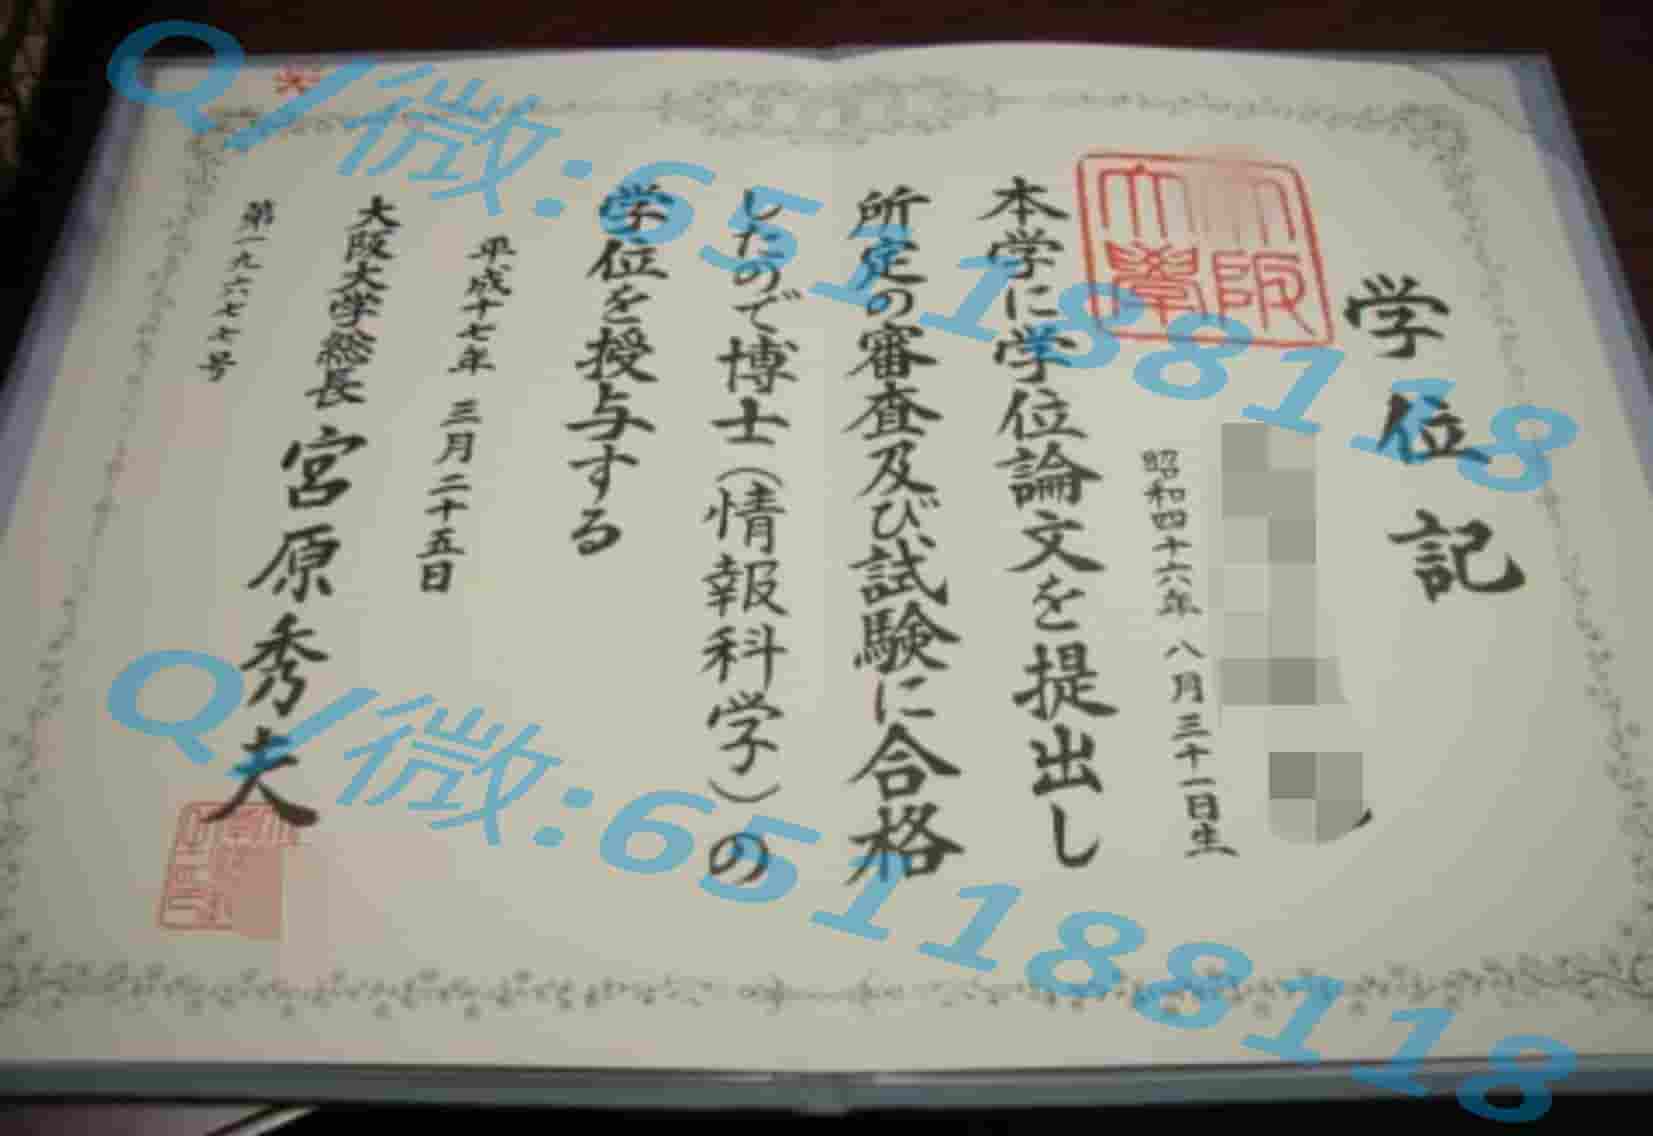 学位記
昭和四十六年 八月三十一日生
本学に学位論文を提出し
所定の審査及び試験に合格
したので博士（情報科学）の
学位を授与する
平成十七年 三月二十五日
大阪大学総長 宮原秀夫
第一九六七七号
大阪大學
Q/微:651188118
Q/微:651188118